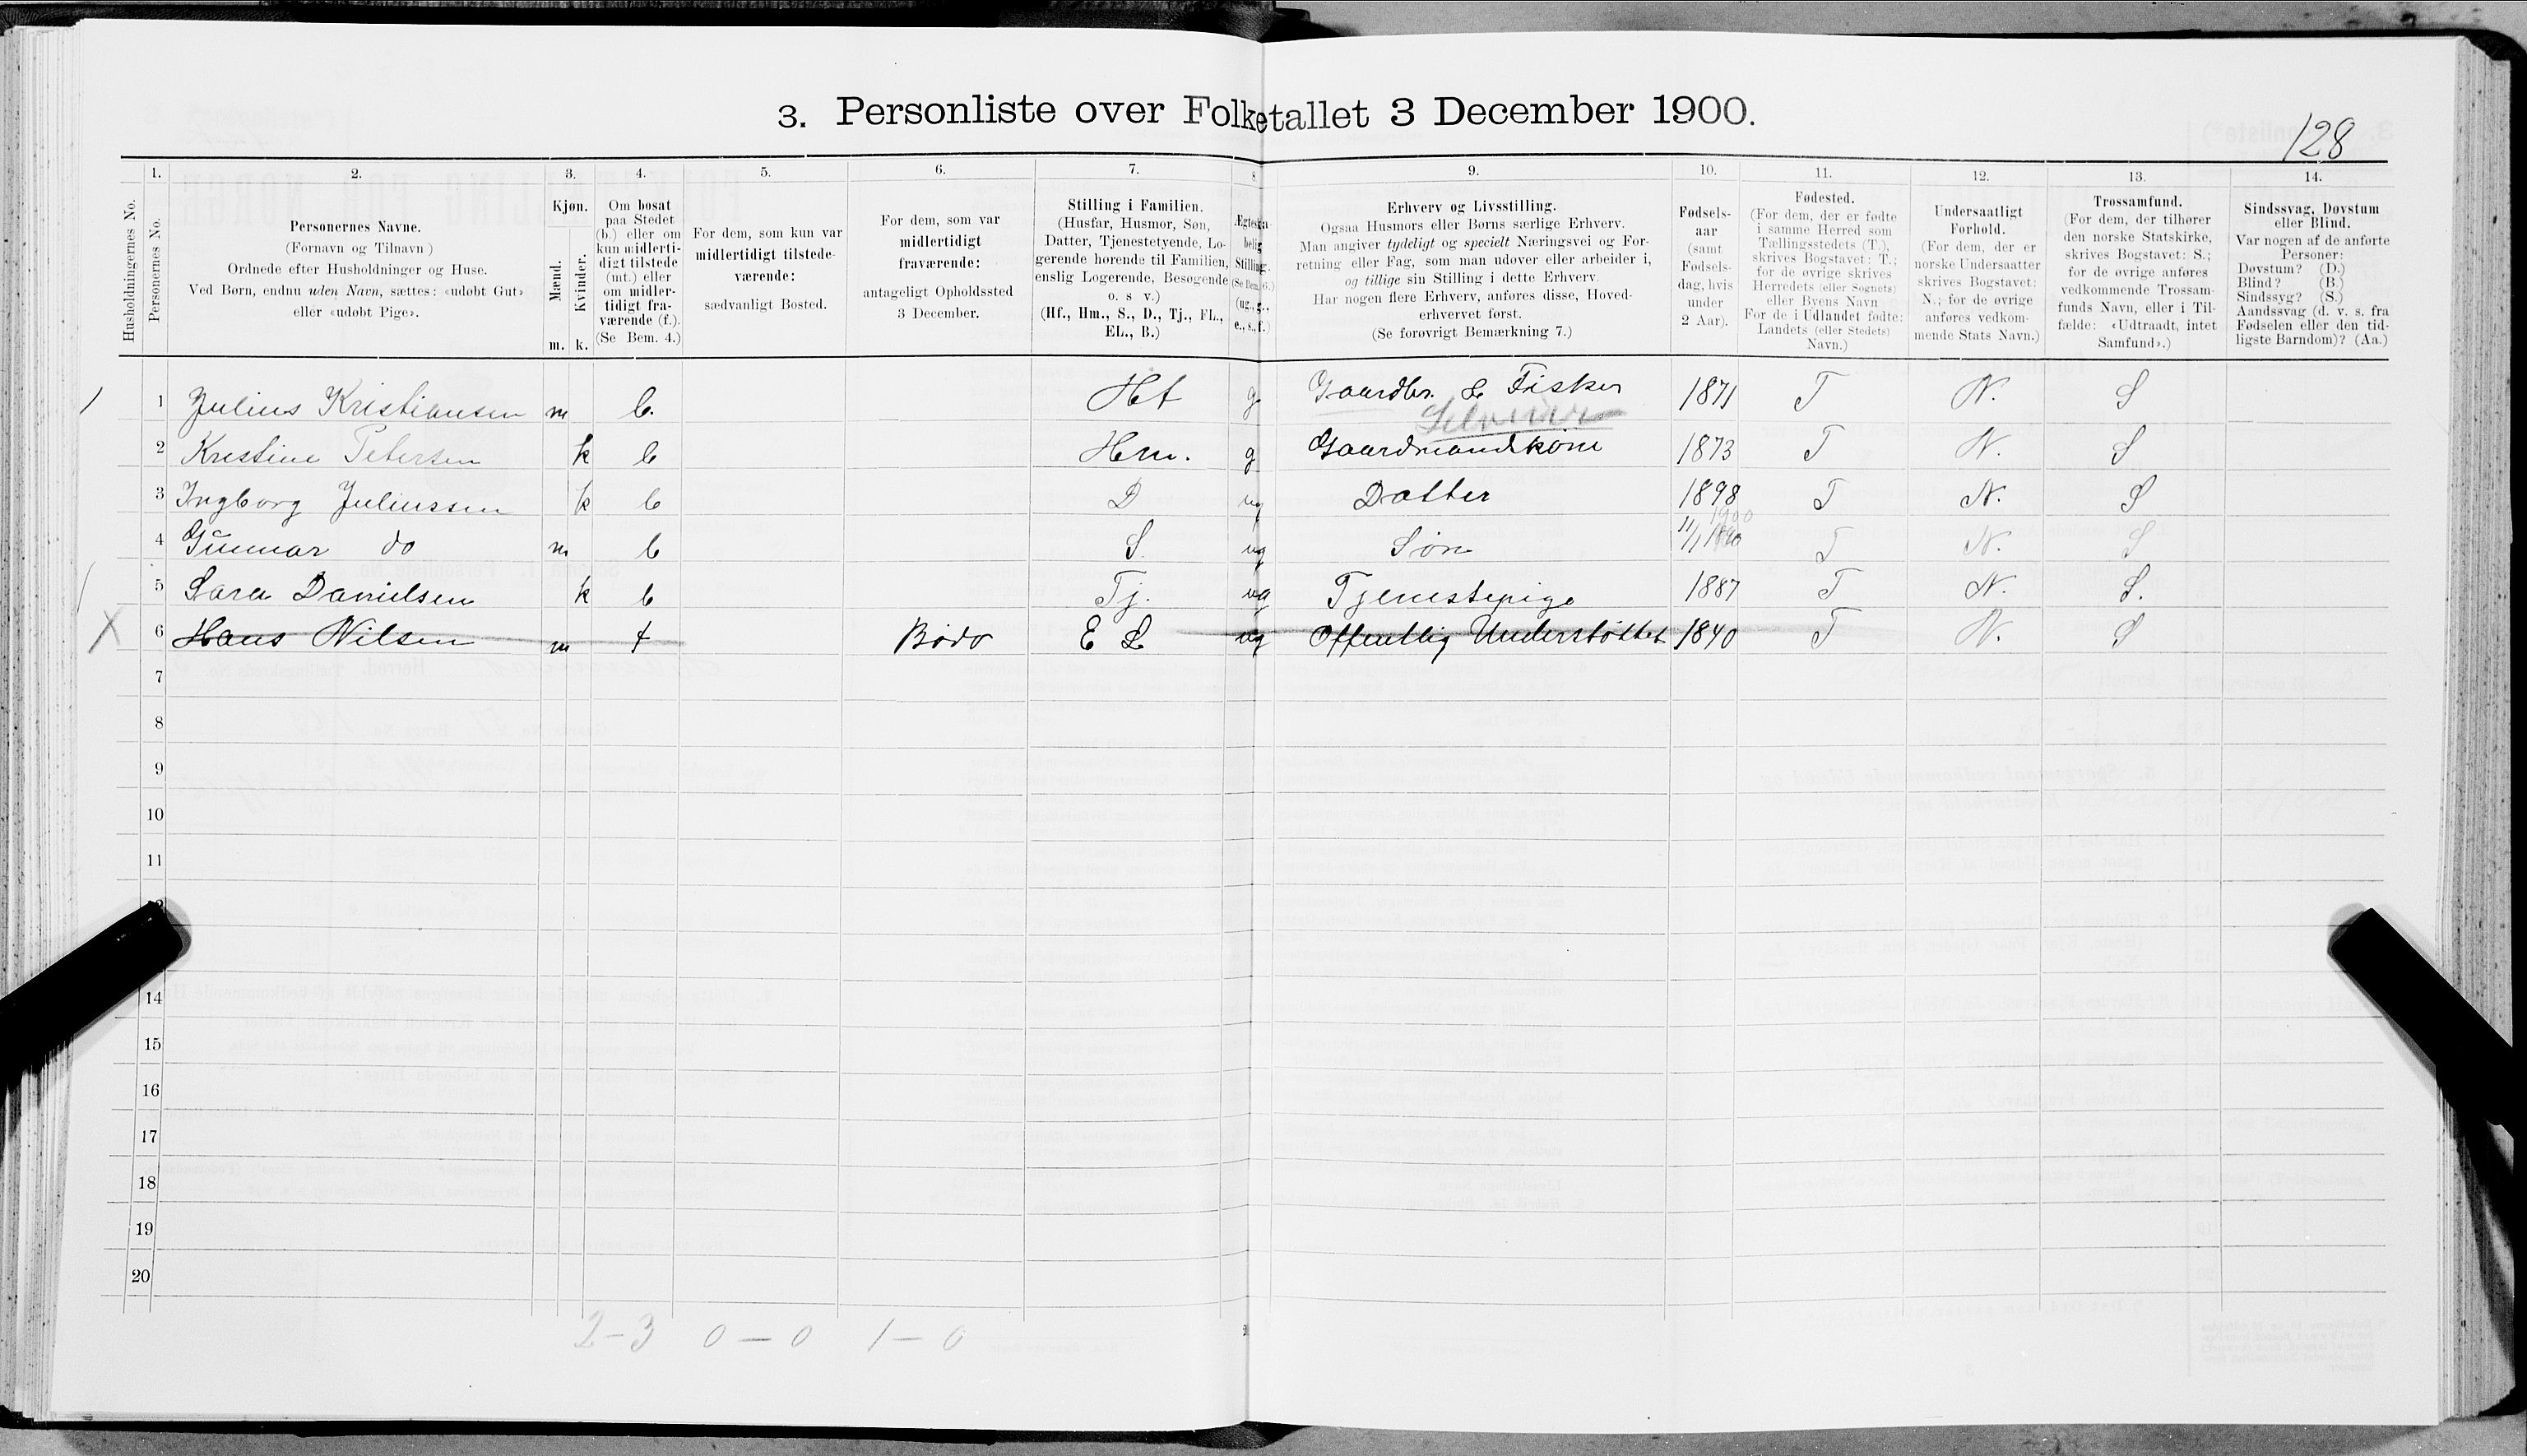 3. Personliste over Folketallet 3 December 1900.
128
Husholdningernes No.
1.
Personernes No.
2.
Personernes Navne.
(Fornavn og Tilnavn)
Ordnede efter Husholdninger og Huse.
Ved Børn, endnu uden Navn, sættes: «udøbt Gut»
eller «udøbt Pige».
3.
Kjøn.
Mænd.
Kvinder.
m. k.
4.
Om bosat
paa Stedet
(b.) eller om
kun midlerti-
digt tilstede
(mt.) eller
om midler-
tidigt fra-
værende (f.).
(Se Bem. 4.)
5.
For dem, som kun var
midlertidigt tilstede-
værende:
sædvanligt Bosted.
6.
For dem, som var
midlertidigt
fraværende:
antageligt Opholdssted
3 December.
7.
Stilling i Familien.
(Husfar, Husmor, Søn,
Datter, Tjenestetyende, Lo-
gerende hørende til Familien,
enslig Logerende, Besøgende
o. s v.)
(Hf., Hm., S., D., Tj., FL.,
EL., B.)
8.
Ægteska-
belig
Stilling.
(Se Bem. 6.)
(ug., g.,
e., s., f.)
9.
Erhverv og Livsstilling.
Ogsaa Husmors eller Børns særlige Erhverv.
Man angiver tydeligt og specielt Næringsvei og For-
retning eller Fag, som man udøver eller arbeider i,
og tillige sin Stilling i dette Erhverv.
Har nogen flere Erhverv, anføres disse, Hoved-
erhvervet først.
(Se forøvrigt Bemærkning 7.)
10.
Fødsels-
aar
(samt
Fødsels-
dag, hvis
under
2 Aar).
11.
Fødested.
(For dem, der er fødte
i samme Herred som
Tællingsstedets (T.),
skrives Bogstavet: T.;
for de øvrige skrives
Herredets (eller Sognets)
eller Byens Navn
For de i Udlandet fødte:
Landets (eller Stedets)
Navn.)
12.
Undersaatligt
Forhold.
(For dem, der er
norske Undersaatter
skrives Bogstavet:
N.; for de øvrige
anføres vedkom-
mende Stats Navn.)
13.
Trossamfund.
(For dem, der tilhører
den norske Statskirke,
skrives Bogstavet: S.;
for de øvrige anføres
vedkommende Trossam-
funds Navn, eller i Til-
fælde: «Udtraadt, intet
Samfund».)
14.
Sindssvag, Døvstum
eller Blind.
Var nogen af de anførte
Personer:
Døvstum? (D.)
Blind? (B.)
Sindssyg? (S.)
Aandssvag (d. v. s. fra
Fødselen eller den tid-
ligste Barndom)? (Aa.)
1 Julius Kristiansen m b. Hf g. Gaardbr. & Fisker 1871 T N. S
Selveier
2 Kristine Petersen k b Hm. g Gaardmandskone 1873 T N. S
3 Ingborg Juliussen k b D ug Datter 1898 T N. S
1900
4 Gunnar do m b S. ug Søn 11/1 T N. S
5 Sara Danielsen k b Tj. ug Tjenestepige 1887 T N. S.
X 6 Hans Nilsen m f Bodo E L ug Offentlig Understöttet 1840 T N. S
7
8
9
10
11
14
15
16
17
18
19
20
2-3 0-0 1-0